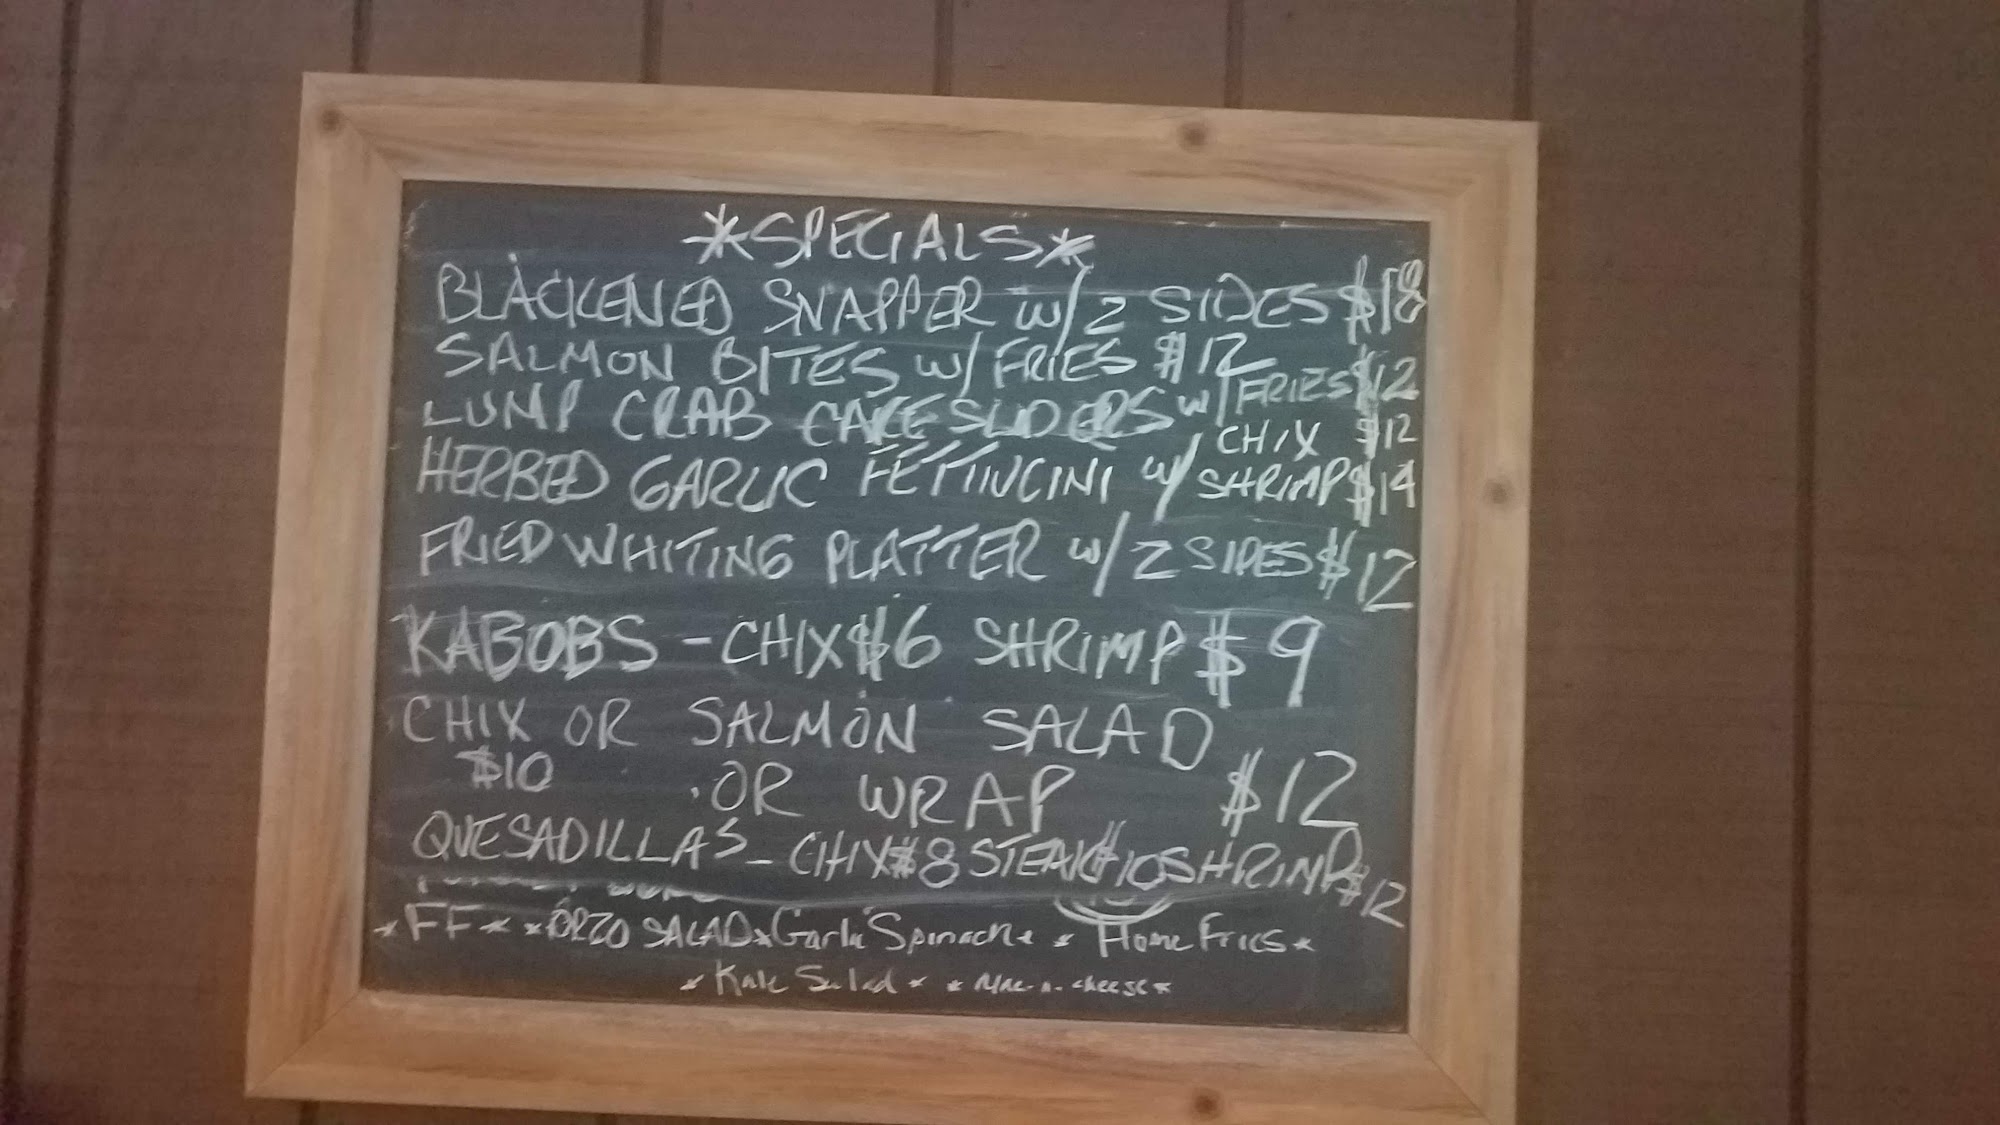 *SPECIALS*
BLACKENED SNAPPER w/2 SIDES $18
SALMON BITES w/FRIES $12
LUMP CRAB CAKE SLIDERS w/FRIES $12
CHIX $12
HERBED GARLIC FETTIUCINI w/ SHRIMP $14
FRIED WHITING PLATTER w/2 SIDES $12
KABOBS - CHIX $6 SHRIMP $9
CHIX OR SALMON SALAD
$10 OR WRAP $12
QUESADILLAS - CHIX $8 STEAK $10 SHRIMP $12
*FF* *ORZO SALAD* Garlic Spinach* * Home Fries*
*Kale Salad* *Mac-n-cheese*